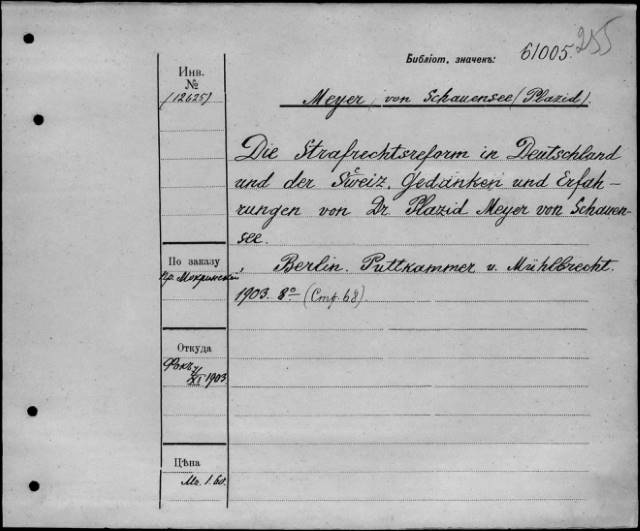 Библіот. значекъ: 61005. 255
Инв.
№
(12625)
Meyer von Schauensee (Plazid).
Die Strafrechtsreform in Deutschland
und der Sweiz. Gedanken und Erfah-
rungen von Dr. Plazid Meyer von Schauen-
see.
Berlin. Puttkammer u. Mühlbrecht.
1903. 8º (Стр. 68)
По заказу
Пр. Мокринскій
Откуда
Фокъ
XI 1903
Цѣна
Mr. 1.60.